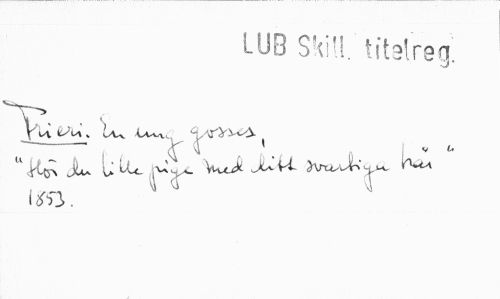 LUB Skill. titelreg.
Frieri. En ung gosses,
"Hör du lilla piga med ditt svartiga hår"
1853.